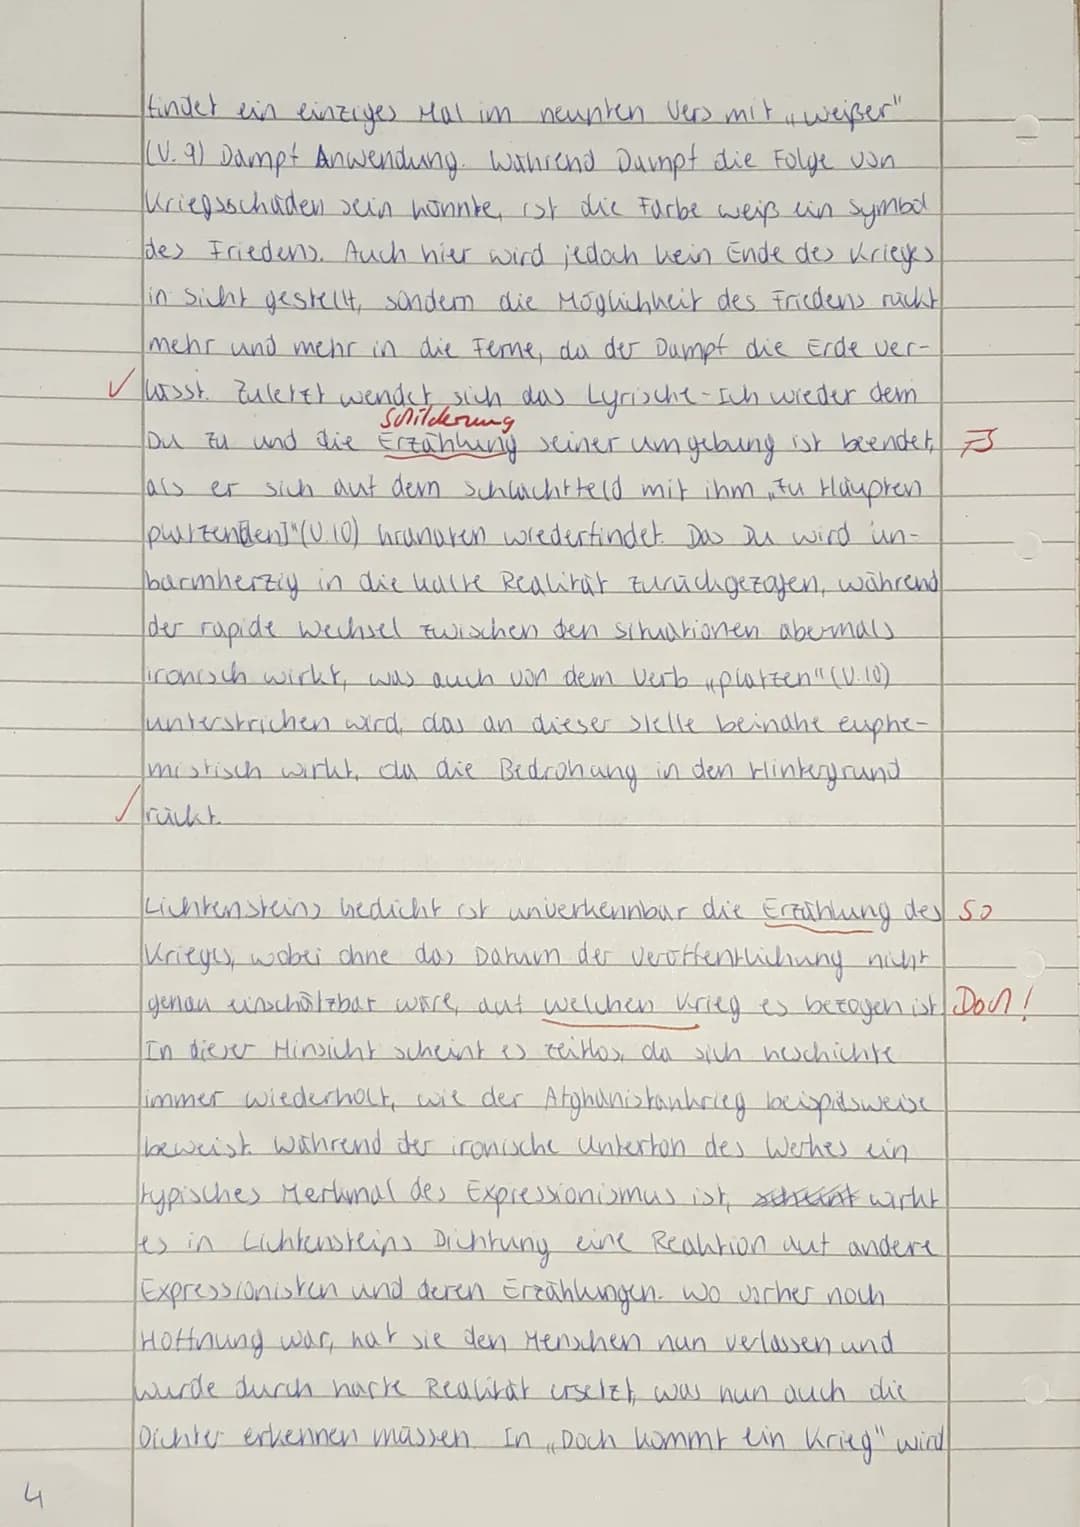 findet ein einziges Mal im neunten Vers mit „weißer"
(V. 9) Dampf Anwendung. Während Dampf die Folge von
Kriegsschäden sein könnte, ist die Farbe weiß ein Symbol
des Friedens. Auch hier wird jedoch kein Ende des Krieges
in Sicht gestellt, sondern die Möglichkeit des Friedens rückt
mehr und mehr in die Ferne, da der Dampf die Erde ver-
✓ lässt. Zuletzt wendet sich das Lyrische-Ich wieder dem
Schilderung
Du zu und die Erzählung seiner Umgebung ist beendet,
als er sich auf dem Schlachtfeld mit ihm „zu Häupten
platzende[n]"(V.10) Granaten wiederfindet. Das Du wird un-
barmherzig in die kalte Realität zurückgezogen, während
der rapide Wechsel zwischen den Situationen abermals
ironisch wirkt, was auch von dem Verb „platzen" (V.10)
unterstrichen wird, das an dieser Stelle beinahe euphe-
mistisch wirkt, da die Bedrohung in den Hintergrund
✓ rückt.
Lichtensteins Gedicht ist unverkennbar die Erzählung des so
Krieges, wobei ohne das Datum der Veröffentlichung nicht
genau einschätzbar wäre, auf welchen Krieg es bezogen ist. Doch!
In dieser Hinsicht scheint es zeitlos, da sich Geschichte
immer wiederholt, wie der Afghanistankrieg beispielsweise
beweist. Während der ironische Unterton des Werkes ein
typisches Merkmal des Expressionismus ist, scheint wirkt
es in Lichtensteins Dichtung eine Reaktion auf andere
Expressionisten und deren Erzählungen. Wo vorher noch
Hoffnung war, hat sie den Menschen nun verlassen und
wurde durch harte Realität ersetzt, was nun auch die
Dichter erkennen müssen. In „Doch kommt ein Krieg" wird
4